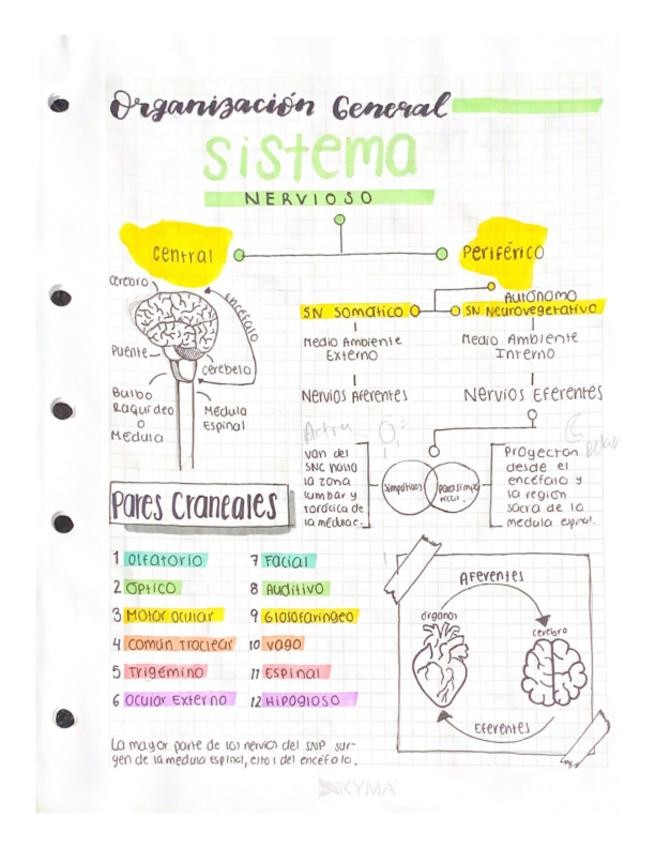 Organización General
sistema
NERVIOSO
central
Periférico
cerebro
encéfalo
Puente
cerebelo
Bulbo
Raquídeo
o
Medula
Medula
Espinal
Autónomo
SN Somático
SN Neurovegetativo
Medio Ambiente
Externo
Medio Ambiente
Interno
Nervios Aferentes
Nervios Eferentes
van del
SNC hasta
la zona
lumbar y
torácica de
la medula.
Simpático
Parasimpá
tico.
Proyectan
desde el
encéfalo y
la región
sacra de la
medula espinal.
Pares Craneales
1 Olfatorio
2 Óptico
3 Motor ocular
4 Común Troclear
5 Trigémino
6 Ocular Externo
7 Facial
8 Auditivo
9 Glosofaríngeo
10 Vago
11 Espinal
12 Hipogloso
La mayor parte de los nervios del SNP sur-
gen de la medula espinal, estos del encéfalo.
Aferentes
órganos
cerebro
Eferentes
KYMA